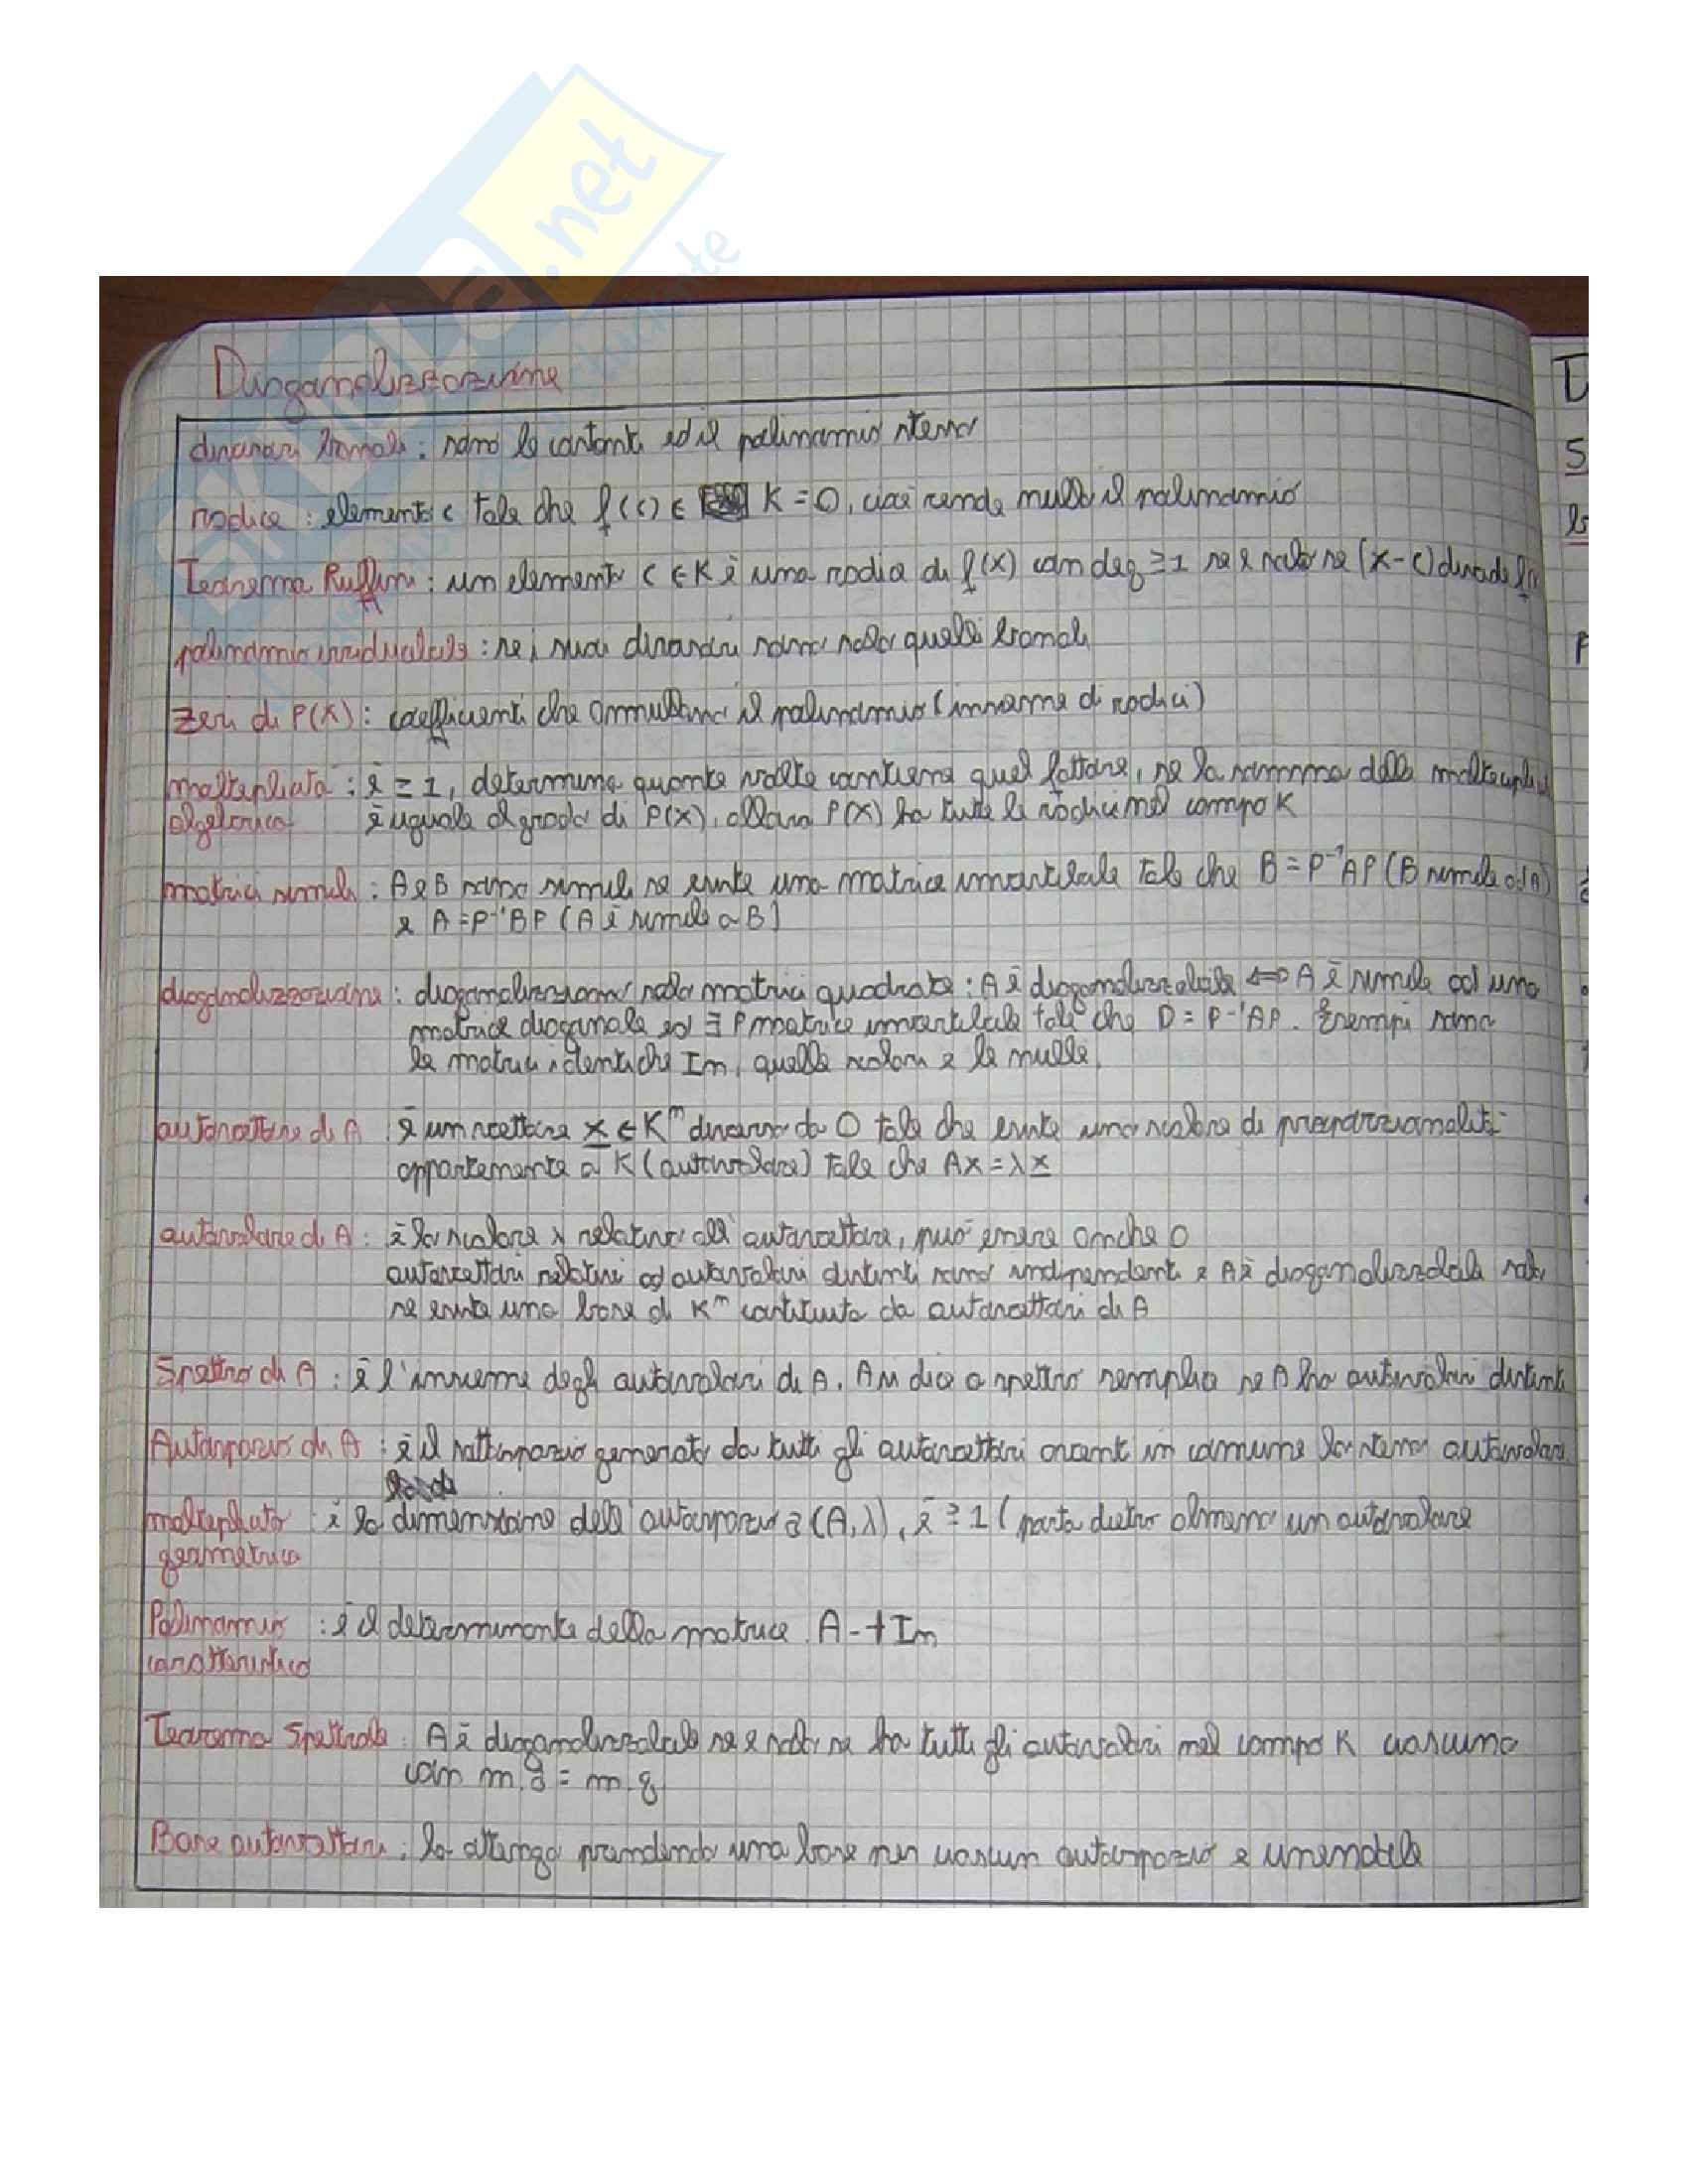 SKUOLA.net
Diagonalizzazione
divisori banali : sono le costanti ed il polinomio stesso
radice : elemento c tale che f(c) ∈ K = 0, cioè rende nullo il polinomio
Teorema Ruffini : un elemento c ∈ K è una radice di f(x) con deg ≥ 1 se e solo se (x-c) divide f(x)
polinomio irriducibile : se i suoi divisori sono solo quelli banali
zeri di P(X) : coefficienti che annullano il polinomio (insieme di radici)
molteplicità : è ≥ 1, determina quante volte contiene quel fattore, se la somma delle molteplicità
algebrica è uguale al grado di P(X), allora P(X) ha tutte le radici nel campo K
matrici simili : A e B sono simili se esiste una matrice invertibile tale che B = P⁻¹AP (B simile ad A)
e A = P⁻¹BP (A è simile a B)
diagonalizzazione : diagonalizziamo solo matrici quadrate : A è diagonalizzabile ⟺ A è simile ad una
matrice diagonale ed ∃ P matrice invertibile tale che D = P⁻¹AP. Esempi sono
le matrici identiche In, quelle scalari e le nulle.
autovettore di A è un vettore x ∈ Kⁿ diverso da 0 tale che esiste uno scalare di proporzionalità
appartenente a K (autovalore) tale che Ax = λx
autovalore di A : è lo scalare λ relativo all'autovettore, può essere anche 0
autovettori relativi ad autovalori distinti sono indipendenti e A è diagonalizzabile solo
se esiste una base di Kⁿ costituita da autovettori di A
Spettro di A : è l'insieme degli autovalori di A. A si dice a spettro semplice se A ha autovalori distinti
Autospazio di A : è il sottospazio generato da tutti gli autovettori aventi in comune lo stesso autovalore
molteplicità : è la dimensione dell'autospazio a(A,λ), è ≥ 1 (porta dietro almeno un autovalore
geometrica
Polinomio : è il determinante della matrice A - tIn
caratteristico
Teorema Spettrale : A è diagonalizzabile se e solo se ha tutti gli autovalori nel campo K ciascuno
con m.a = m.g
Base autovettori : la ottengo prendendo una base per ciascun autospazio e unendole